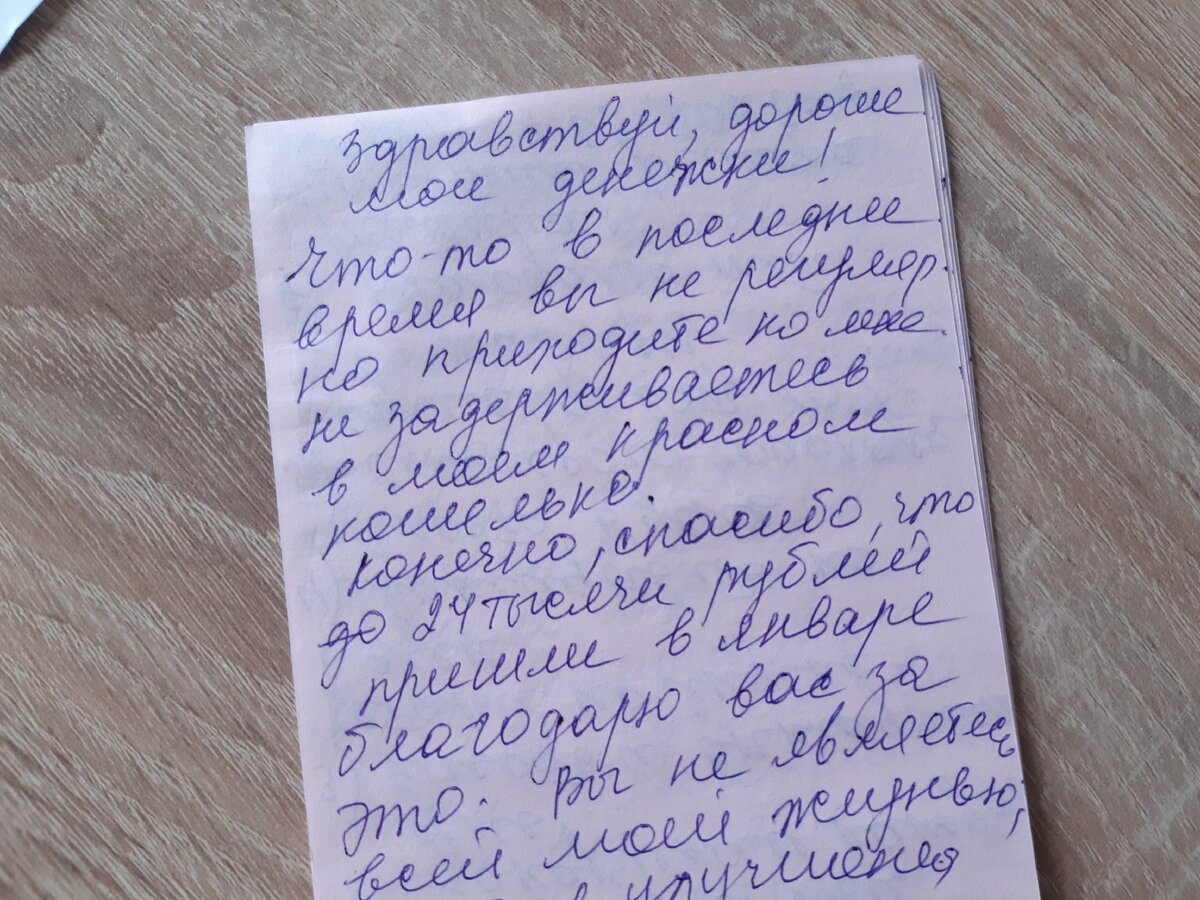 Здравствуй, дорогие
мои денежки!
Что-то в последние
время вы не регуляр-
но приходите ко мне
не задерживаетесь
в моем красном
кошельке.
Конечно, спасибо, что
до 24 тысячи рублей
пришли в январе
благодарю вас за
это. Вы не являетесь
всей моей жизнью,
улучшения